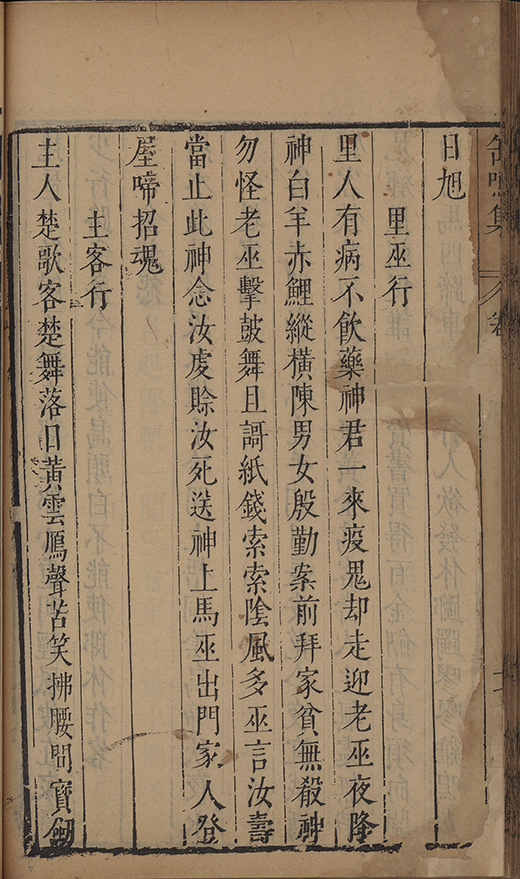 缶鳴集 卷
日旭
里巫行
里人有病不飲藥神君一來疫鬼却走迎老巫夜降
神白羊赤鯉縱橫陳男女殷勤案前拜家貧無殽神
勿怪老巫擊鼓舞且謌紙錢索索陰風多巫言汝壽
當止此神念汝虔賒汝死送神上馬巫出門家人登
屋啼招魂
主客行
主人楚歌客楚舞落日黃雲鴈聲苦笑拂腰間寶劒